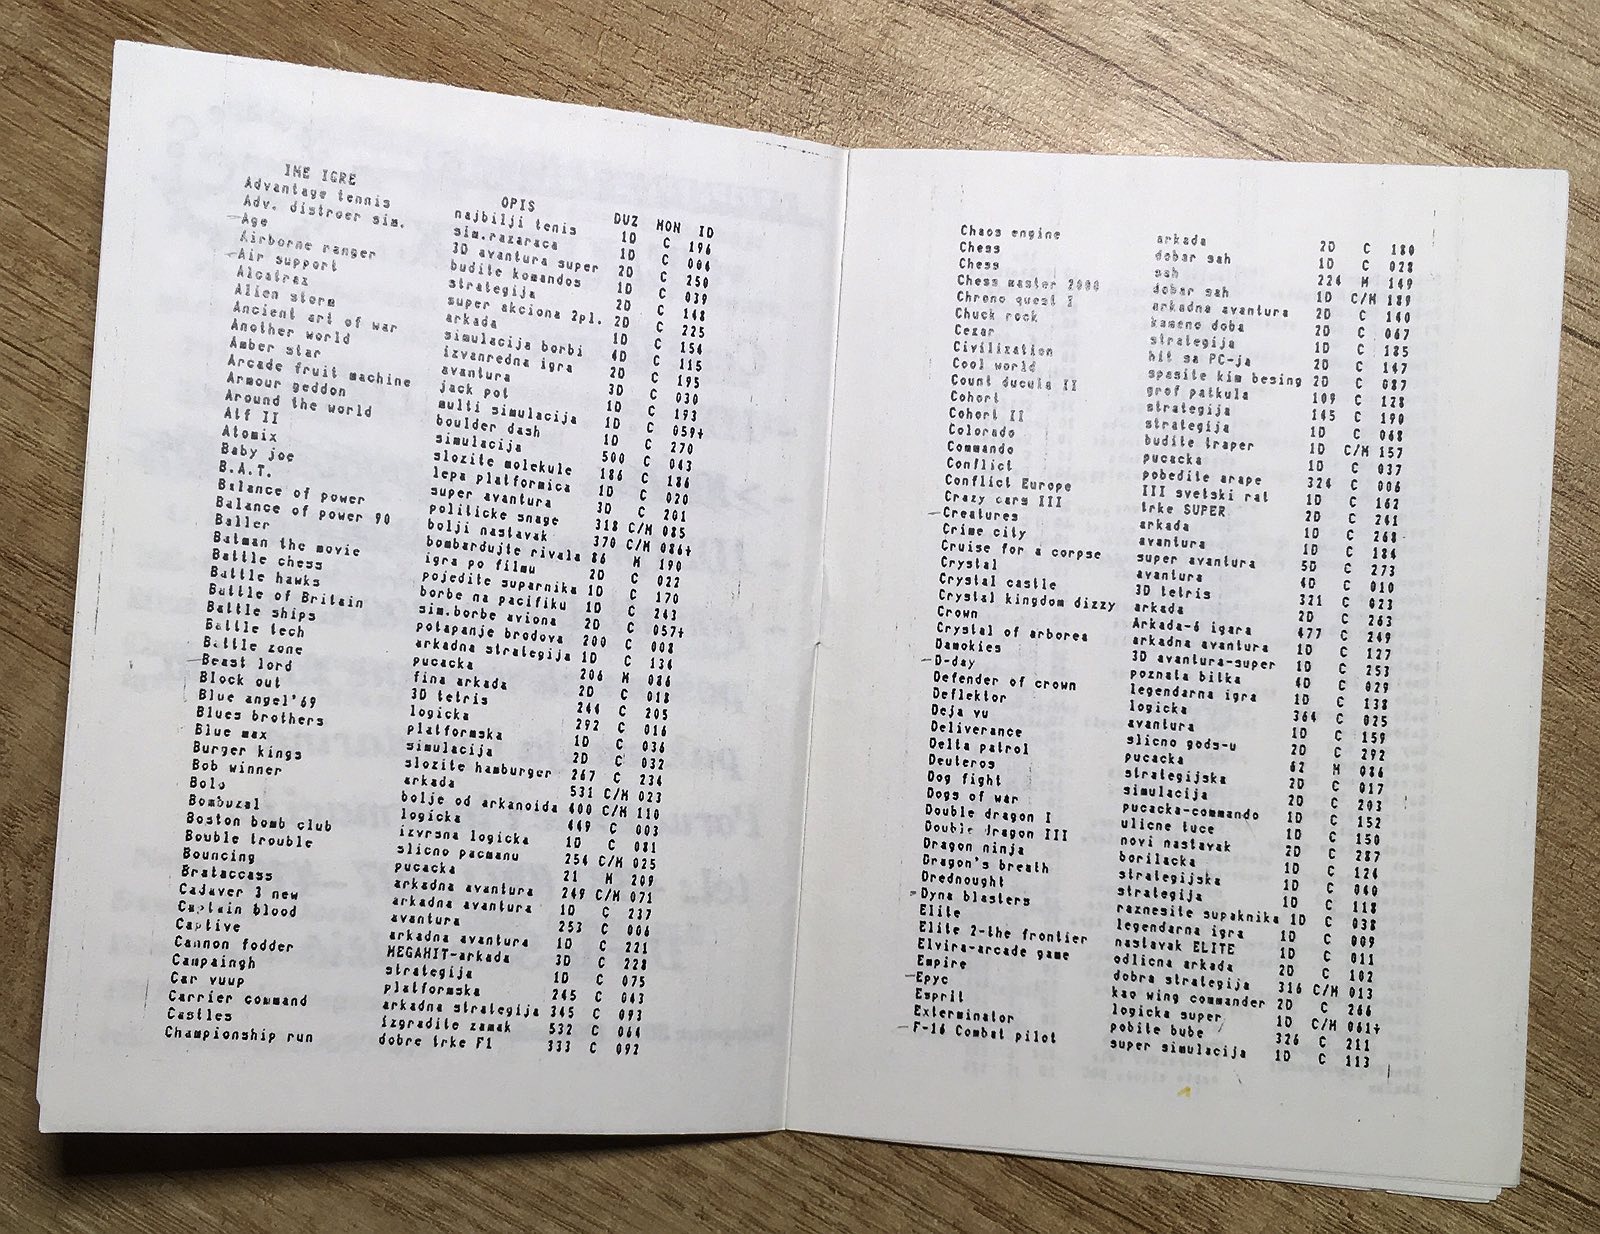 IME IGRE OPIS DUZ MON ID
Advantage tennis najbilji tenis 1D C 196
Adv. distroer sim. sim.razaraca 1D C 004
Age 3D avantura super 2D C 250
Airborne ranger budite komandos 1D C 039
Air support strategija 2D C 148
Alcatraz super akciona 2pl. 2D C 225
Alien storm arkada 1D C 154
Ancient art of war simulacija borbi 4D C 115
Another world izvanredna igra 2D C 195
Amber star avantura 3D C 030
Arcade fruit machine jack pot 1D C 193
Armour geddon multi simulacija 1D C 059+
Around the world boulder dash 1D C 270
Atf II simulacija 500 C 043
Atomix slozite molekule 186 C 186
Baby joe lepa platformica 1D C 020
B.A.T. super avantura 3D C 201
Balance of power politicke snage 318 C/M 085
Balance of power 90 bolji nastavak 370 C/M 086+
Baller bombardujte rivala 86 M 190
Batman the movie igra po filmu 2D C 022
Battle chess pojedite suparnika 1D C 170
Battle hawks borbe na pacifiku 1D C 243
Battle of Britain sim.borbe aviona 2D C 057+
Battle ships potapanje brodova 200 C 008
Battle tech arkadna strategija 1D C 136
Battle zone pucacka 206 M 086
Beast lord fina arkada 2D C 018
Block out 3D tetris 244 C 205
Blue angel'69 logicka 292 C 016
Blues brothers platformska 1D C 036
Blue max simulacija 2D C 032
Burger kings slozite hamburger 267 C 234
Bob winner arkada 531 C/M 023
Bolo bolje od arkanoida 400 C/M 110
Bombuzal logicka 449 C 003
Boston bomb club izvrsna logicka 1D C 081
Bouble trouble slicno pacmanu 254 C/M 025
Bouncing pucacka 21 M 209
Brataccass arkadna avantura 249 C/M 071
Cadaver 3 new arkadna avantura 1D C 237
Captain blood avantura 253 C 006
Captive arkadna avantura 1D C 221
Cannon fodder MEGAHIT-arkada 3D C 228
Campaingh strategija 1D C 075
Car vuup platformska 245 C 043
Carrier command arkadna strategija 345 C 093
Castles izgradite zamak 532 C 064
Championship run dobre trke F1 333 C 092
Chaos engine arkada 2D C 180
Chess dobar sah 1D C 028
Chess sah 224 M 149
Chess master 2000 dobar sah 1D C/M 189
Chrono quest I arkadna avantura 2D C 140
Chuck rock kameno doba 2D C 067
Cezar strategija 1D C 185
Civilization hit sa PC-ja 2D C 147
Cool world spasite kim besing 2D C 087
Count ducula II grof patkula 109 C 128
Cohort strategija 145 C 190
Cohort II strategija 1D C 068
Colorado budite traper 1D C/M 157
Commando pucacka 1D C 037
Conflict pobedite arape 324 C 006
Conflict Europe III svetski rat 1D C 162
Crazy cars III trke SUPER 2D C 241
Creatures arkada 1D C 268
Crime city avantura 1D C 184
Cruise for a corpse super avantura 5D C 273
Crystal avantura 4D C 010
Crystal castle 3D tetris 321 C 023
Crystal kingdom dizzy arkada 2D C 263
Crown Arkada-6 igara 477 C 249
Crystal of arborea arkadna avantura 1D C 127
Damokles 3D avantura-super 1D C 253
D-day poznata bitka 4D C 029
Defender of crown legendarna igra 1D C 138
Deflektor logicka 364 C 025
Deja vu avantura 1D C 159
Deliverance slicno gods-u 2D C 292
Delta patrol pucacka 62 M 086
Deuteros strategijska 2D C 017
Dog fight simulacija 2D C 203
Dogs of war pucacka-commando 1D C 152
Double dragon I ulicne tuce 1D C 150
Double dragon III novi nastavak 2D C 287
Dragon ninja borilacka 1D C 124
Dragon's breath strategijska 1D C 040
Drednought strategija 1D C 118
Dyna blasters raznesite supaknika 1D C 038
Elite legendarna igra 1D C 009
Elite 2-the frontier nastavak ELITE 1D C 011
Elvira-arcade game odlicna arkada 2D C 102
Empire dobra strategija 316 C/M 013
Epyc kao wing commander 2D C 266
Esprit logicka super 1D C/M 061+
Exterminator pobite bube 326 C 211
F-16 Combat pilot super simulacija 1D C 113